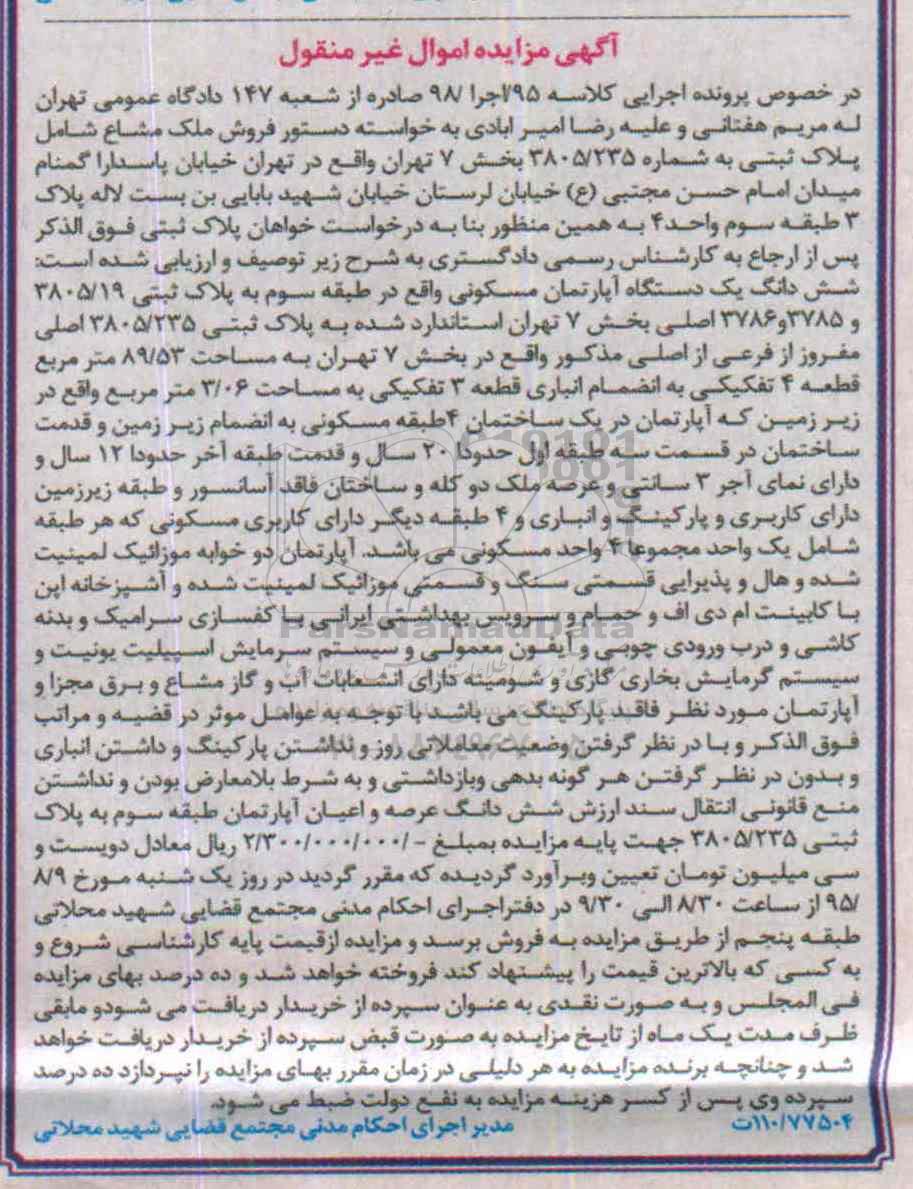 آگهی مزایده اموال غیر منقول
در خصوص پرونده اجرایی کلاسه ۹۵/اجرا /۹۸ صادره از شعبه ۱۴۷ دادگاه عمومی تهران
له مریم هفتانی و علیه رضا امیر ابادی به خواسته دستور فروش ملک مشاع شامل
پلاک ثبتی به شماره ۳۸۰۵/۲۳۵ بخش ۷ تهران واقع در تهران خیابان پاسدارا گمنام
میدان امام حسن مجتبی (ع) خیابان لرستان خیابان شهید بابایی بن بست لاله پلاک
۳ طبقه سوم واحد۴ به همین منظور بنا به درخواست خواهان پلاک ثبتی فوق الذکر
پس از ارجاع به کارشناس رسمی دادگستری به شرح زیر توصیف و ارزیابی شده است:
شش دانگ یک دستگاه آپارتمان مسکونی واقع در طبقه سوم به پلاک ثبتی ۳۸۰۵/۱۹
و ۳۷۸۵و۳۷۸۶ اصلی بخش ۷ تهران استاندارد شده به پلاک ثبتی ۳۸۰۵/۲۳۵ اصلی
مفروز از فرعی از اصلی مذکور واقع در بخش ۷ تهران به مساحت ۸۹/۵۳ متر مربع
قطعه ۴ تفکیکی به انضمام انباری قطعه ۳ تفکیکی به مساحت ۳/۰۶ متر مربع واقع در
زیر زمین که آپارتمان در یک ساختمان ۴طبقه مسکونی به انضمام زیر زمین و قدمت
ساختمان در قسمت سه طبقه اول حدودا ۲۰ سال و قدمت طبقه آخر حدودا ۱۲ سال و
دارای نمای آجر ۳ سانتی و عرصه ملک دو کله و ساختان فاقد آسانسور و طبقه زیرزمین
دارای کاربری و پارکینگ و انباری و ۴ طبقه دیگر دارای کاربری مسکونی که هر طبقه
شامل یک واحد مجموعا ۴ واحد مسکونی می باشد. آپارتمان دو خوابه موزائیک لمینیت
شده و هال و پذیرایی قسمتی سنگ و قسمتی موزائیک لمینیت شده و آشپزخانه اپن
با کابینت ام دی اف و حمام و سرویس بهداشتی ایرانی با کفسازی سرامیک و بدنه
کاشی و درب ورودی چوبی و آیفون معمولی و سیستم سرمایش اسپیلیت یونیت و
سیستم گرمایش بخاری گازی و شومینه دارای انشعابات آب و گاز مشاع و برق مجزا و
آپارتمان مورد نظر فاقد پارکینگ می باشد با توجه به عوامل موثر در قضیه و مراتب
فوق الذکر و با در نظر گرفتن وضعیت معاملاتی روز و نداشتن پارکینگ و داشتن انباری
و بدون در نظر گرفتن هر گونه بدهی وبازداشتی و به شرط بلامعارض بودن و نداشتن
منع قانونی انتقال سند ارزش شش دانگ عرصه و اعیان آپارتمان طبقه سوم به پلاک
ثبتی ۳۸۰۵/۲۳۵ جهت پایه مزایده بمبلغ -/۲/۳۰۰/۰۰۰/۰۰۰ ریال معادل دویست و
سی میلیون تومان تعیین وبرآورد گردیده که مقرر گردید در روز یک شنبه مورخ ۸/۹
/۹۵ از ساعت ۸/۳۰ الی ۹/۳۰ در دفتراجرای احکام مدنی مجتمع قضایی شهید محلاتی
طبقه پنجم از طریق مزایده به فروش برسد و مزایده ازقیمت پایه کارشناسی شروع و
به کسی که بالاترین قیمت را پیشنهاد کند فروخته خواهد شد و ده درصد بهای مزایده
فی المجلس و به صورت نقدی به عنوان سپرده از خریدار دریافت می شودو مابقی
ظرف مدت یک ماه از تایخ مزایده به صورت قبض سپرده از خریدار دریافت خواهد
شد و چنانچه برنده مزایده به هر دلیلی در زمان مقرر بهای مزایده را نپردازد ده درصد
سپرده وی پس از کسر هزینه مزایده به نفع دولت ضبط می شود.
۱۱۰/۷۷۵۰۴ت مدیر اجرای احکام مدنی مجتمع قضایی شهید محلاتی
ParsNamadData